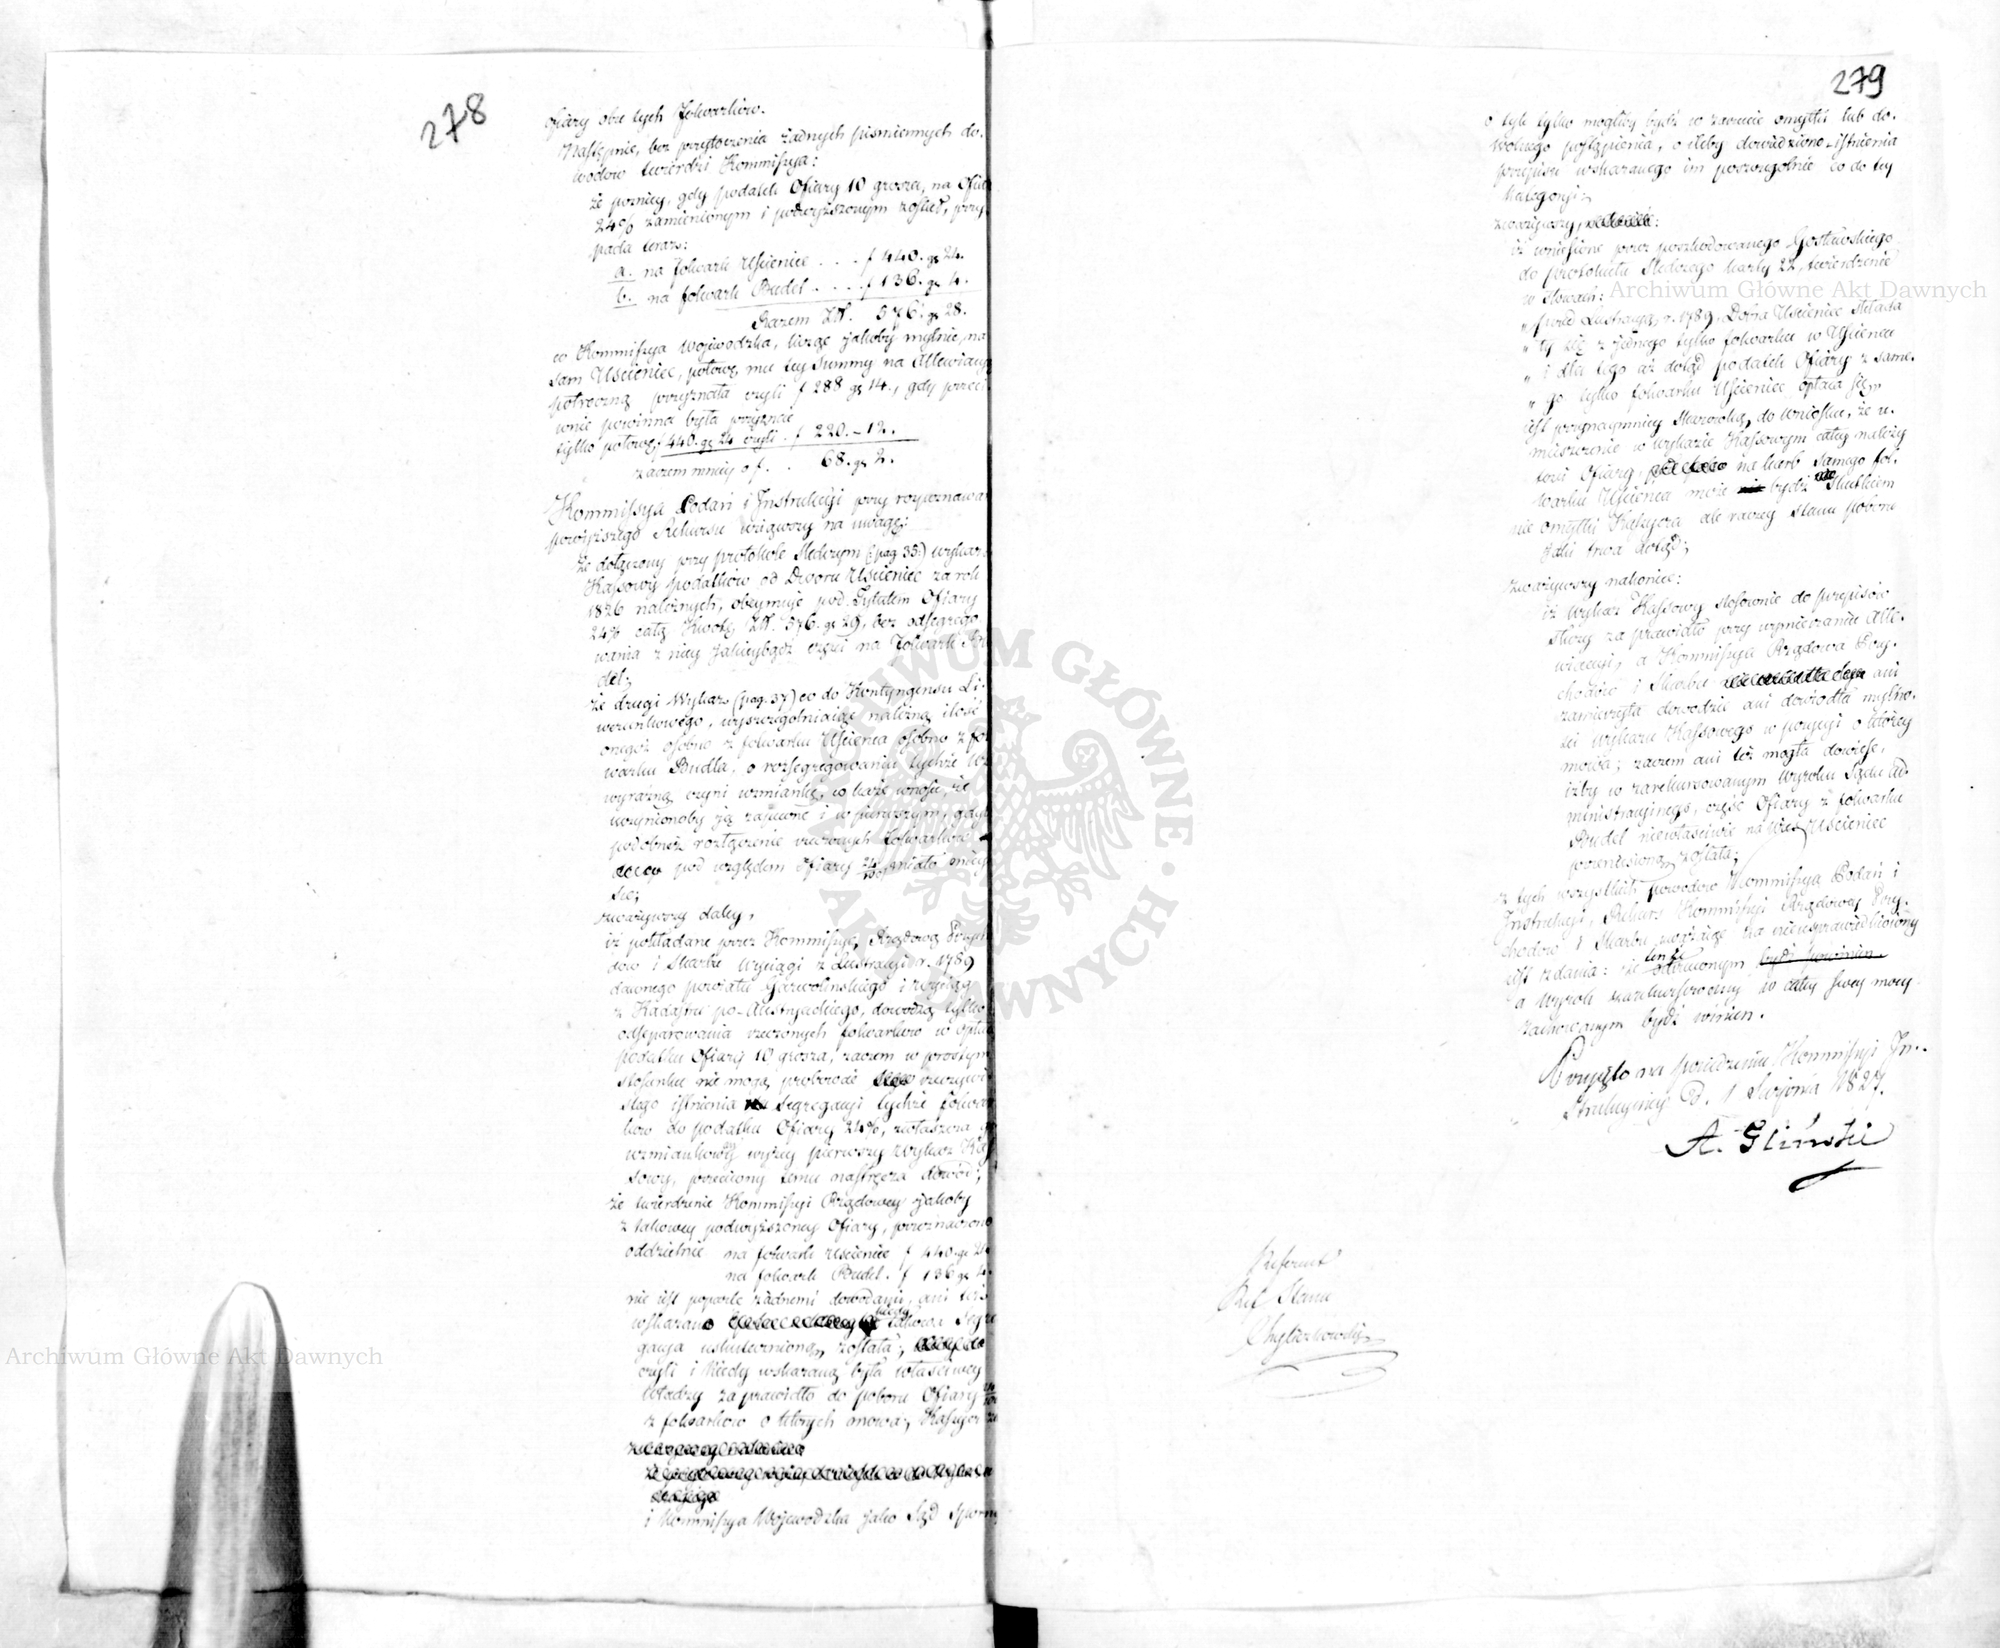 278
Ofiary obu tych Folwarków.
Następnie, bez przytoczenia żadnych piśmiennych do-
wodów twierdzi Kommissya:
że poźniey, gdy podatek Ofiary 10 grosza, na Ofia
24% zamienionym i podwyższonym został, przy-
pada teraz:
a. na folwark Uscieniec . . . f 440. gr 24.
b. na folwark Budel . . . . f 136. gr 4.
Razem Złł. 576. gr 28.
co Kommissya Wojewodzka, licząc jakoby mylnie, na
sam Uscieniec, połowę mu tey Summy na Allewiacyą
półroczną przyznała czyli f 288 gr 14., gdy przeci-
wnie powinna była przyznać
tylko połowę f 440. gr 24 czyli . f 220. – 12.
zatem mniey o f. . 68. gr 2.
Kommissya Podań i Instrukcyi przy rozpoznawa
powyższego Rekursu wziąwszy na uwagę:
że dołączony przy protokole Śledczym (pag 35:) wykaz
Kassowy podatków od Dworu Uscieniec za rok
1826 należnych, obeymuje pod Tytułem Ofiary
24% całą Kwotę Złł. 576. gr 29, bez odsegrego-
wania z niey jakieybądź części na Folwark Bu
del;
że drugi Wykaz (pag. 37) co do Kontyngensu Li-
werunkowego, wyszczególniaiąc należną ilość
onegoż osobno z folwarku Uscienca osobno z fol
warku Budla, o rozsegregowaniu tychże
wyraźną czyni wzmiankę, co każe wnosić, że
uczynionoby ją zapewne i w pierwszym, gdyby
podobneż rozłączenie rzeczonych Folwarków
pod względem Ofiary 24/100 miało miey
sce;
zważywszy daley,
iż pokładane przez Kommissyę Rządową Przycho
dów i Skarbu Wyciągi z Lustracyi r. 1789
dawnego powiatu Garwolińskiego i wyciąg
z Kadastru po-Austryackiego, dowodzą tylko
odseparowania rzeczonych folwarków w opła
podatku Ofiary 10 grosza, zaczem w prostym
stosunku nie mogą probować rzeczywi
stego istnienia segregacyi tychże folwar
ków do podatku Ofiary 24%, zwłaszcza g
wzmiankowany wyżey pierwszy Wykaz Kas
sowy, przeciwny temu nastręcza dowód;
że twierdzenie Kommissyi Rządowey jakoby
z takowey podwyższoney Ofiary, przeznaczono
oddzielnie na folwark Uscieniec f 440. gr 24
na folwark Budel . f 136 gr 4.
nie iest poparte żadnemi dowodami, ani też
wskazano kiedy takowa Segre
gacya uskutecznioną została;
czyli i kiedy wskazaną była właściwey
Władzy za prawidło do poboru Ofiary 24/100
z folwarków o których mowa; Kassyer za
i Kommissya Wojewodzka jako Sąd Sporny
279
o tyle tylko mogliby bydź w zarzucie omyłki lub do-
wolnego postąpienia, o ileby dowiedziono istnienia
przepisu wskazanego im poszczególnie co do tey
kategoryi;
zważywszy,
iż wniesione przez poszkodowanego Gostkowskiego
do protokułu Śledczego karty 22, twierdzenie
w słowach:
„ przed Lustracyą r. 1789, Dobra Uscieniec składa
„ ły się z jednego tylko folwarku w Uscieńcu
„ i dla tego aż dotąd podatek Ofiary z same-
„ go tylko folwarku Uscieniec opłaca się,„
iest przynaymniey skazówką, do wniosku, że u-
mieszczenie w wykazie Kassowym całey należy
tości Ofiary na karb samego fol-
warku Uscienca może bydź skutkiem
nie omyłki Kassyera ale raczey stanu poboru
jaki trwa dotąd;
zważywszy nakoniec:
iż Wykaz Kassowy stosownie do przepisów
służy za prawidło przy wymierzaniu Alle-
wiacyi, a Kommissya Rządowa Przy-
chodów i Skarbu ani
zamierzyła dowodzić ani dowiodła mylno-
ści Wykazu Kassowego w pozycyi o którey
mowa; zaczem ani też mogła dowieść,
iżby w zarekursowanym Wyroku Sądu Ad-
ministracyinego, część Ofiary z folwarku
Budel niewłaściwie na Wieś Uscieniec
przeniesioną została;
z tych wszystkich powodów Kommissya Podań i
Instrukcyi, Rekurs Kommissyi Rządowey Przy-
chodów i Skarbu uważając za nieusprawiedliwiony
iest zdania: że tenże odrzuconym bydź powinien
a Wyrok zarekursowany w całey swey mocy
zachowanym bydź winien.
Przyięto na posiedzeniu Kommissyi In-
strukcyiney d. 1 Sierpnia 1827.
A. Gliński
Referent
Ref Stanu
Archiwum Główne Akt Dawnych
Archiwum Główne Akt Dawnych
ARCHIWUM GŁÓWNE AKT DAWNYCH